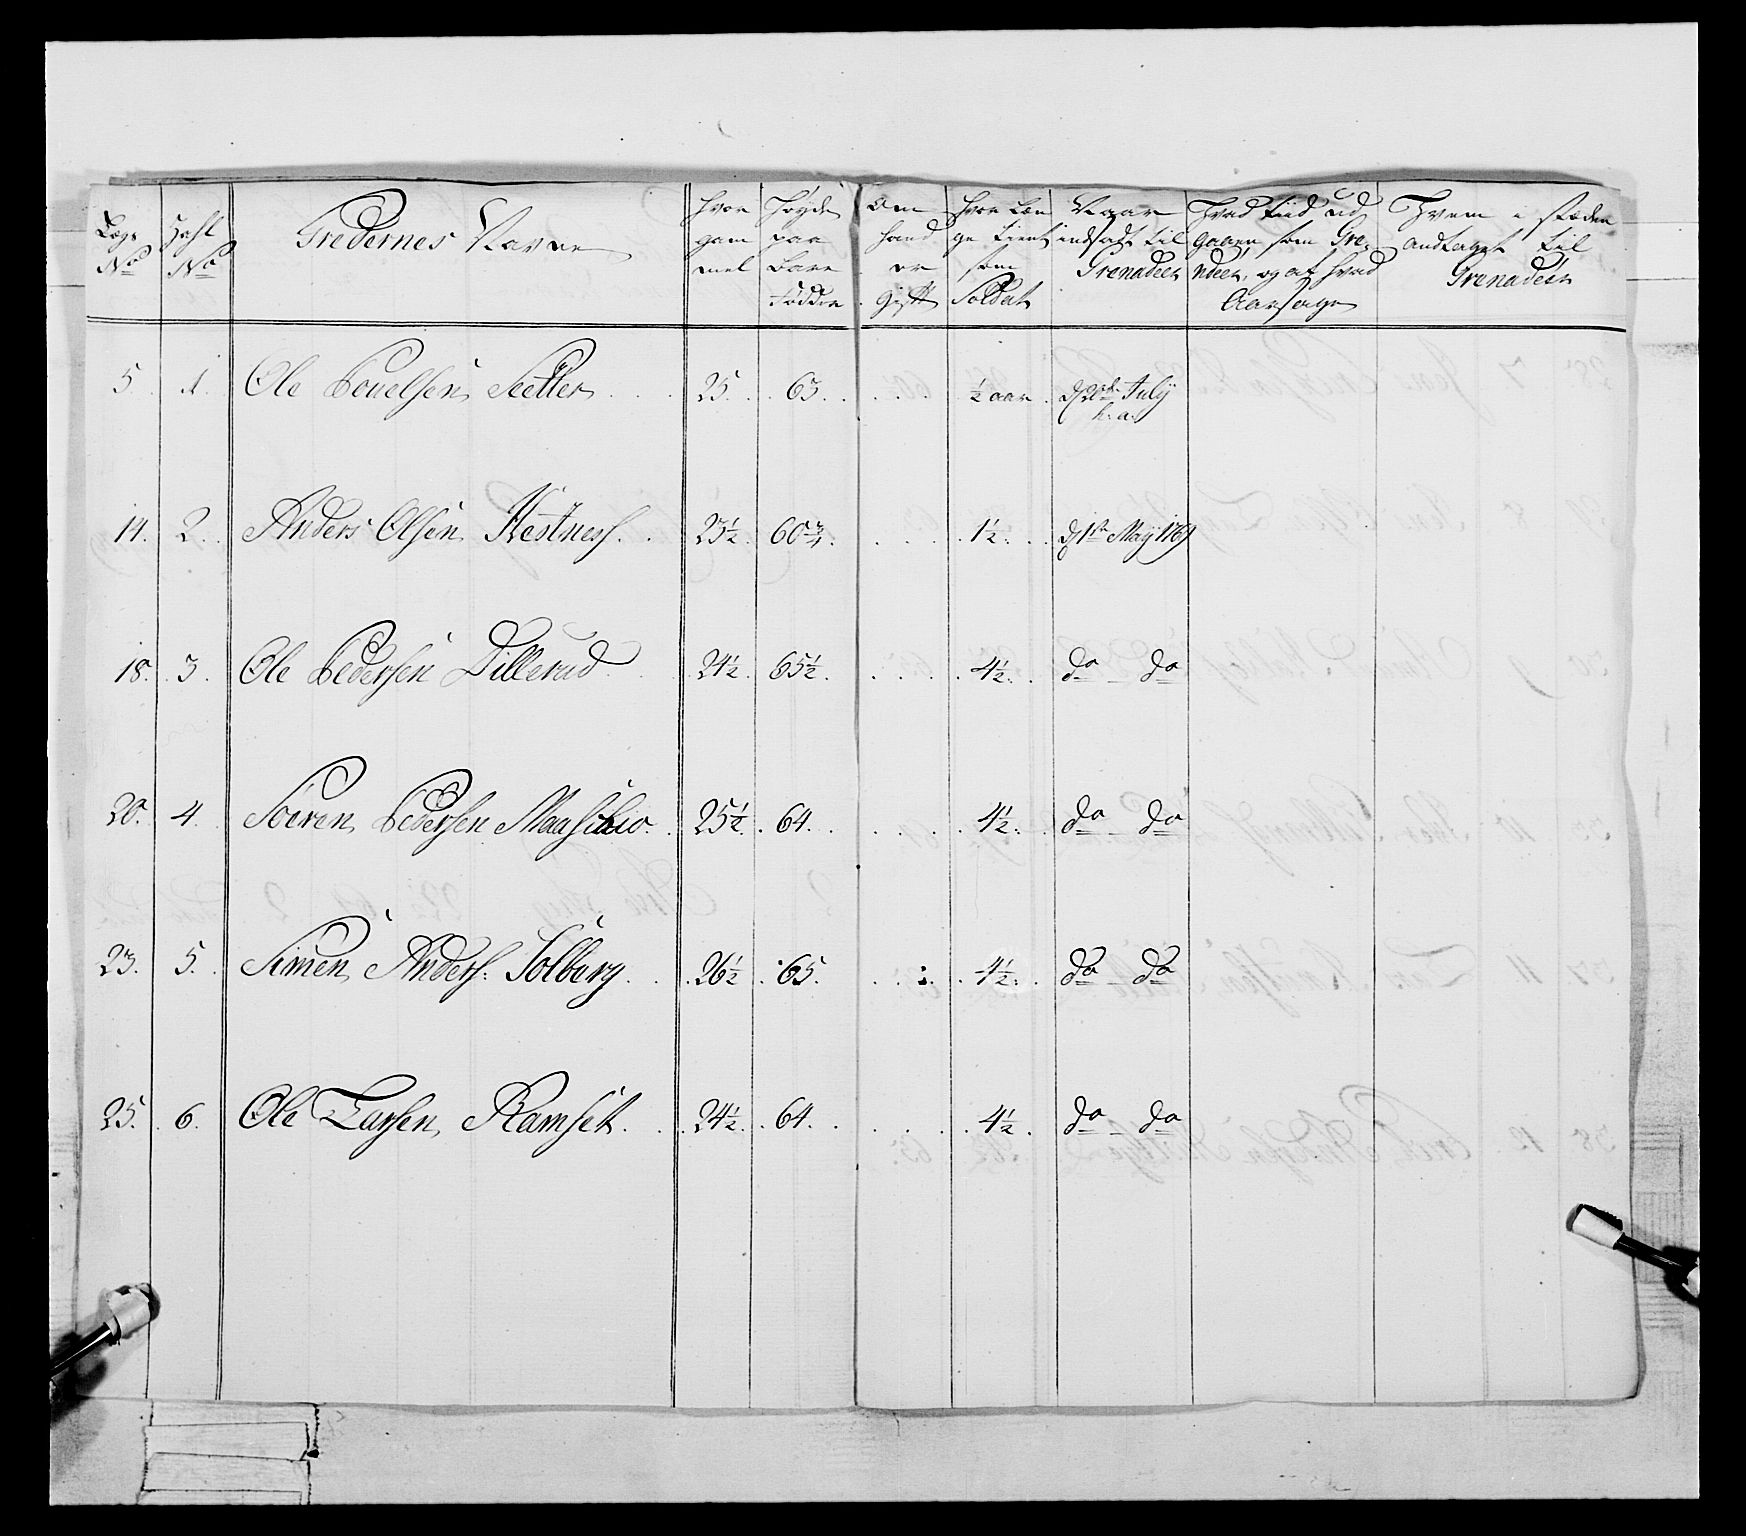 Lægs No
Zahl No
Gredernes Navne
hvor gam mel
Høyde paa bare Fødder
Om hand er gift
hvor læn ge tient som Soldat
Naar indsadt til Grenadeer
Hvad tiid ud gaaen som Gre- nadeer, og af hvad Aarsage
Hvem i stæden andtaget til Grenadeer
5. 1. Ole Pouelsen Sætter 25. 63. ½ aar July h: a:
14. 2. Anders Olsen Hestness. 23½ 60¾. 1½. d 1ste Maÿ 1769
18. 3. Ole Pedersen Dillerud 24½ 65½. 4½. do do
20. 4. Soeren Pedersen 25½. 64. 4½. do do
23. 5. Simen Anders: Solberg 26½ 65. 4½. do do
25. 6. Ole Larsen Ramset 24½. 64. 4½. do do